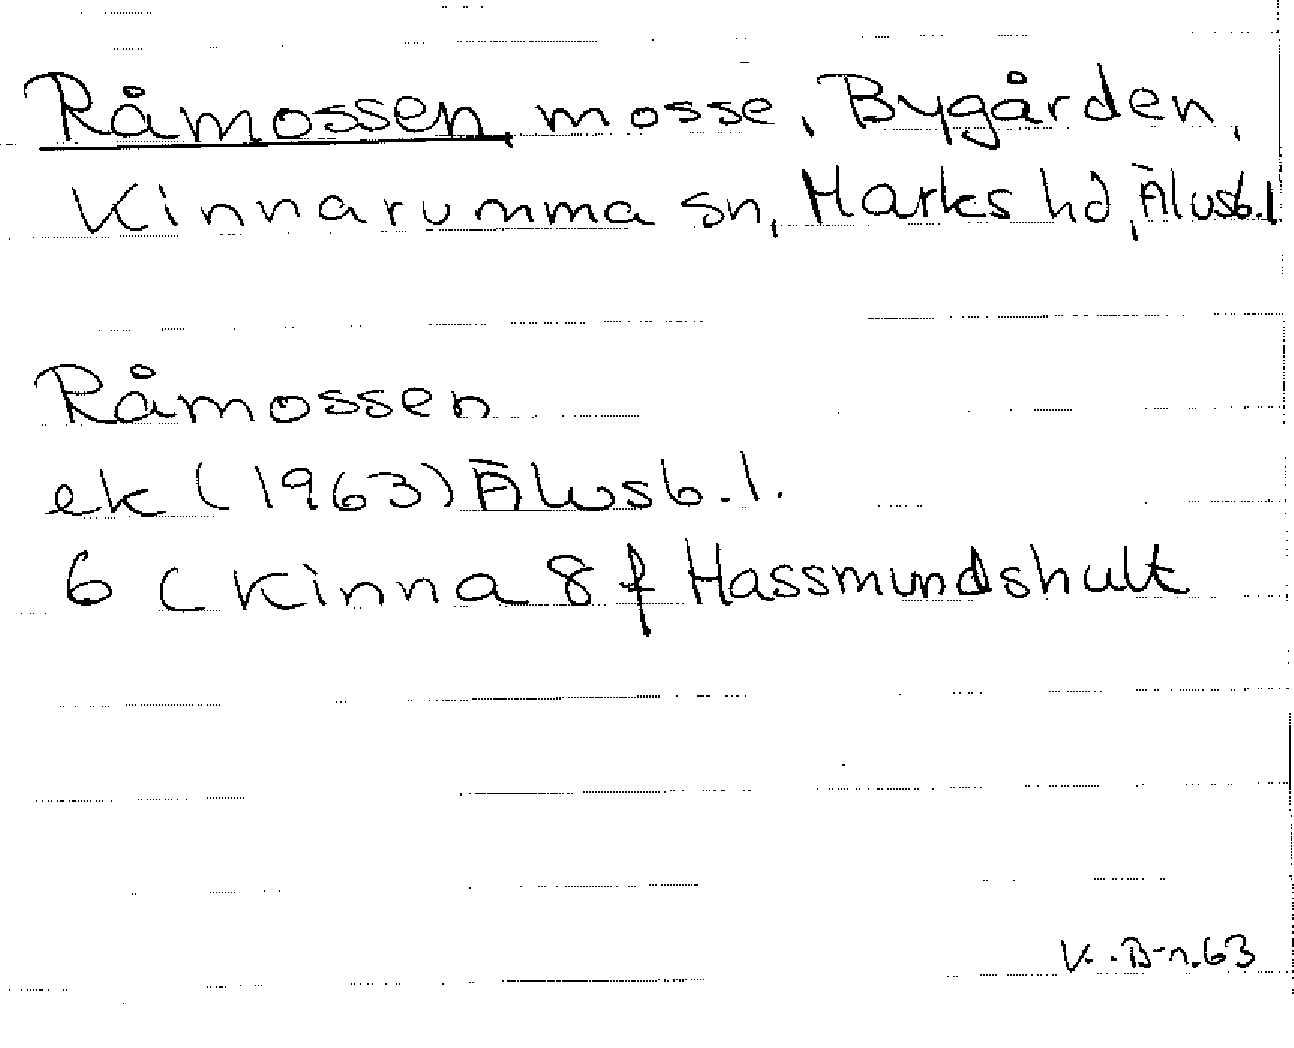 Råmossen mosse, Bygården,
Kinnarumma sn, Marks hd, Älvsb.l
Råmossen
ek (1963) Älvsb.l.
6 C Kinna 8 f Hassmundshult
K.B-n.63